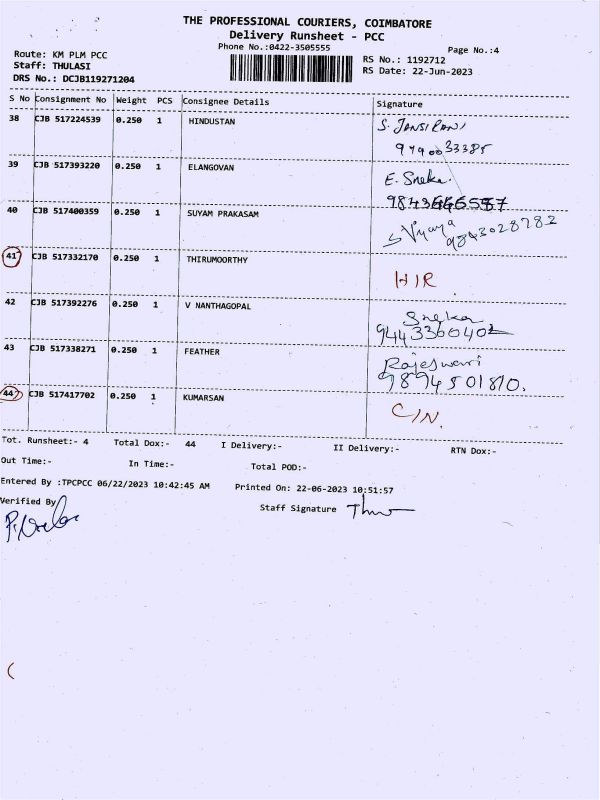 THE PROFESSIONAL COURIERS, COIMBATORE
Delivery Runsheet - PCC
Phone No.:0422-3505555
Page No.:4
Route: KM PLM PCC
RS No.: 1192712
Staff: THULASI
RS Date: 22-Jun-2023
DRS No.: DCJB119271204
S No Consignment No Weight PCS Consignee Details Signature
38 CJB 517224539 0.250 1 HINDUSTAN S. JANSI RANI
9790033385
39 CJB 517393220 0.250 1 ELANGOVAN E. Sneka
40 CJB 517400359 0.250 1 SUYAM PRAKASAM S Vijaya 9843028782
41 CJB 517332170 0.250 1 THIRUMOORTHY
H/R
42 CJB 517392276 0.250 1 V NANTHAGOPAL Sneka
9443360402
43 CJB 517338271 0.250 1 FEATHER Rajeswari
9894501810.
44 CJB 517417702 0.250 1 KUMARSAN C/N.
Tot. Runsheet:- 4 Total Dox:- 44 I Delivery:- II Delivery:- RTN Dox:-
Out Time:- In Time:- Total POD:-
Entered By :TPCPCC 06/22/2023 10:42:45 AM Printed On: 22-06-2023 10:51:57
Verified By Staff Signature